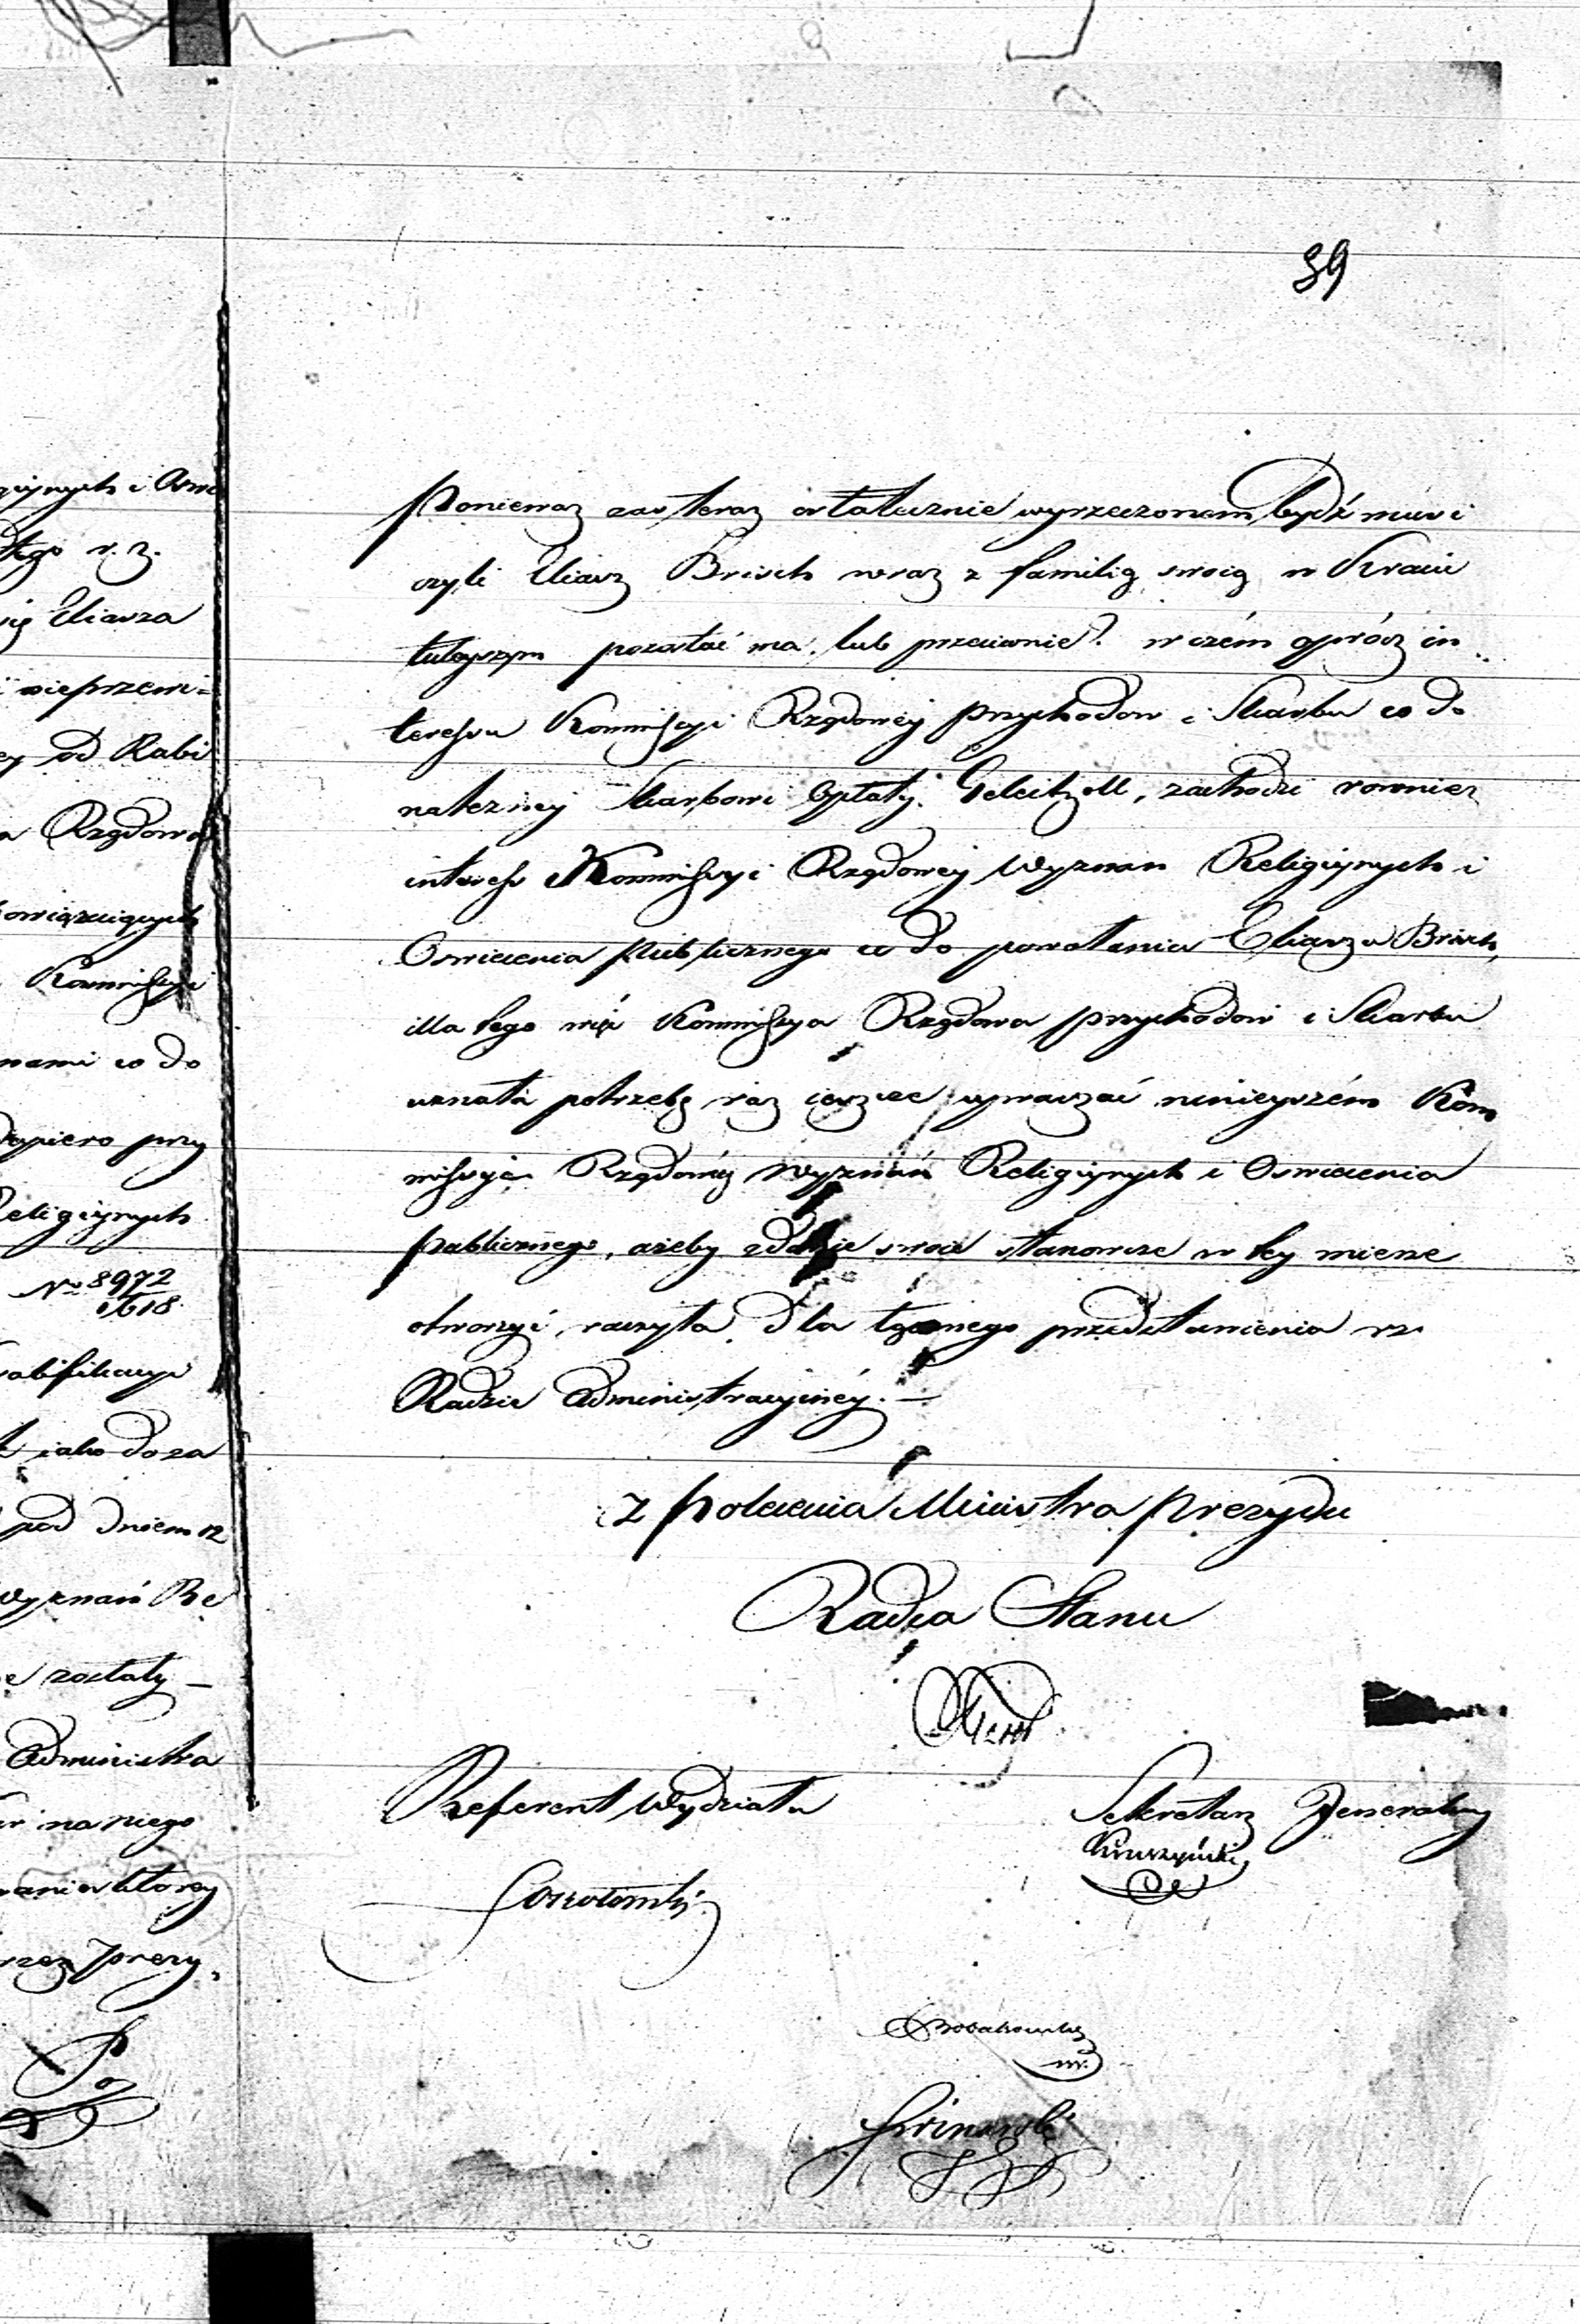 39
Poniewaz zas teraz ostatecznie wyrzeczonem bydź musi
czyli Eliasz Brisch wraz z familią swoią w Kraiu
tuteyszym pozostać ma, lub przeciwnie? w czém oprócz in
teressu Kommissyi Rządowéy Przychodow i Skarbu co do
nalezney Skarbowi Opłaty Geleitzoll, zachodzi rownież
interess Kommissyi Rządowéy Wyznan Religiynych i
Oswiecenia Publicznego co do powołania Eliasza Brisch,
dla tego więc Kommissya Rządowa Przychodow i Skarbu
uznała potrzebę raz ieszcze upraszać ninieyszém Kom
missyją Rządową Wyznań Religiynych i Oswiecenia
Publicznego, ażeby zdanie swoie stanowcze w tey mierze
otworzyć raczyła dla łącznego przedstawienia rz.
Radzie Administracyinéy. —
z Polecenia Ministra Prezydu
Radca Stanu
Referent Wydziału
Sekretarz Jeneralny
Kruszyński
gijnych i Oswi
tego r. z.
się Eliasza
i nieprzewi=
ey od Rabi
a Rządowa
owiązuiących
Kommissyi
nami co do
dopiero przy
Religiynych
No 8972
1618
walifikacyi
iako do za
pod dniem 12
Wyznań Re
e zostały —
Administra
na niego
wania który
rzez Prezy.